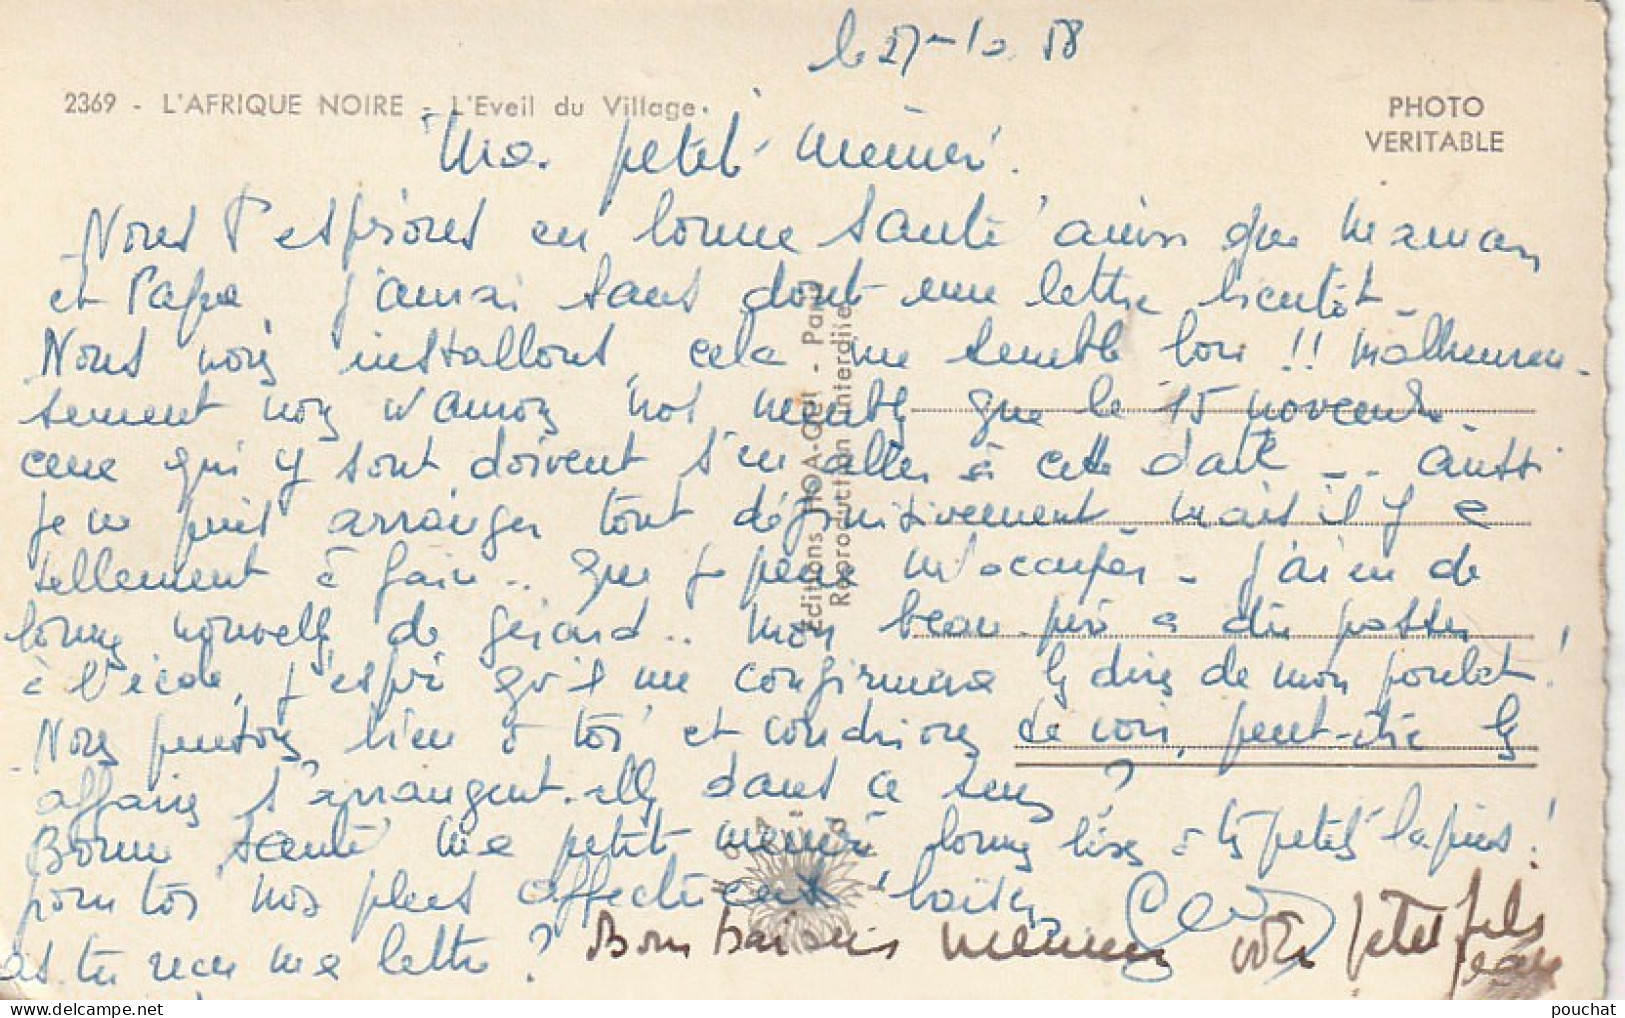 le 27-10 58
2369 - L'AFRIQUE NOIRE - L'Eveil du Village.
PHOTO
VERITABLE
Ma petite mémé.
Nous t'espérons en bonne santé ainsi que Maman
et Papa j'aurai sans doute une lettre bientôt.
Nous nous installons, cela me semble bon !! Malheureu-
sement nous n'aurons nos meubles que le 15 novembre
ceux qui y sont doivent s'en aller à cette date... aussi
je ne puis arranger tout définitivement. Mais il y a
tellement à faire.. que je peux m'occuper. J'ai eu de
bonnes nouvelles de Gérard.. mon beau-père a dû passer
à l'école, j'espère qu'il me confirmera les dires de mon poulet!
Nous pensons bien à toi et voudrions te voir, peut-être les
affaires s'arrangent-elles dans ce sens?
Bonne santé ma petite mémé bonnes bises à tes petits lapins!
pour toi nos plus affectueux baisers
as-tu reçu ma lettre?
Bons baisers mémé votre petit fils
Jean
Editions HOA-QUI - Paris
Reproduction interdite
pouchat